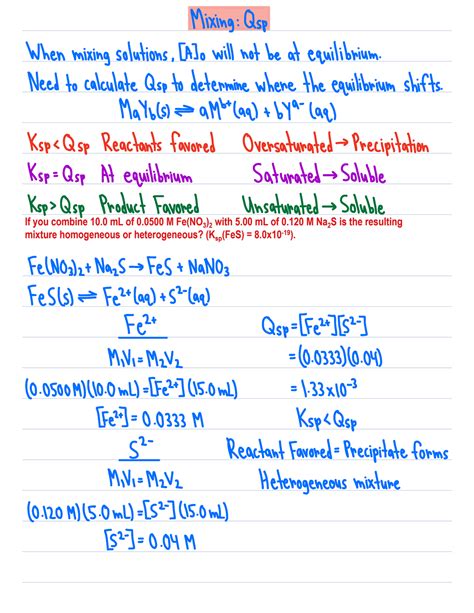 Mixing: Qsp
When mixing solutions, [A]₀ will not be at equilibrium.
Need to calculate Qsp to determine where the equilibrium shifts.
MaYb(s) ⇌ aMᵇ⁺(aq) + bYᵃ⁻(aq)
Ksp < Qsp Reactants favored Oversaturated → Precipitation
Ksp = Qsp At equilibrium Saturated → Soluble
Ksp > Qsp Product Favored Unsaturated → Soluble
If you combine 10.0 mL of 0.0500 M Fe(NO₃)₂ with 5.00 mL of 0.120 M Na₂S is the resulting
mixture homogeneous or heterogeneous? (Kₛₚ(FeS) = 8.0x10⁻¹⁹).
Fe(NO₃)₂ + Na₂S → FeS + NaNO₃
FeS(s) ⇌ Fe²⁺(aq) + S²⁻(aq)
Fe²⁺
M₁V₁ = M₂V₂
(0.0500M)(10.0mL) = [Fe²⁺](15.0mL)
[Fe²⁺] = 0.0333 M
S²⁻
M₁V₁ = M₂V₂
(0.120 M)(5.0mL) = [S²⁻](15.0mL)
[S²⁻] = 0.04 M
Qsp = [Fe²⁺][S²⁻]
= (0.0333)(0.04)
= 1.33 x 10⁻³
Ksp < Qsp
Reactant Favored = Precipitate forms
Heterogeneous mixture